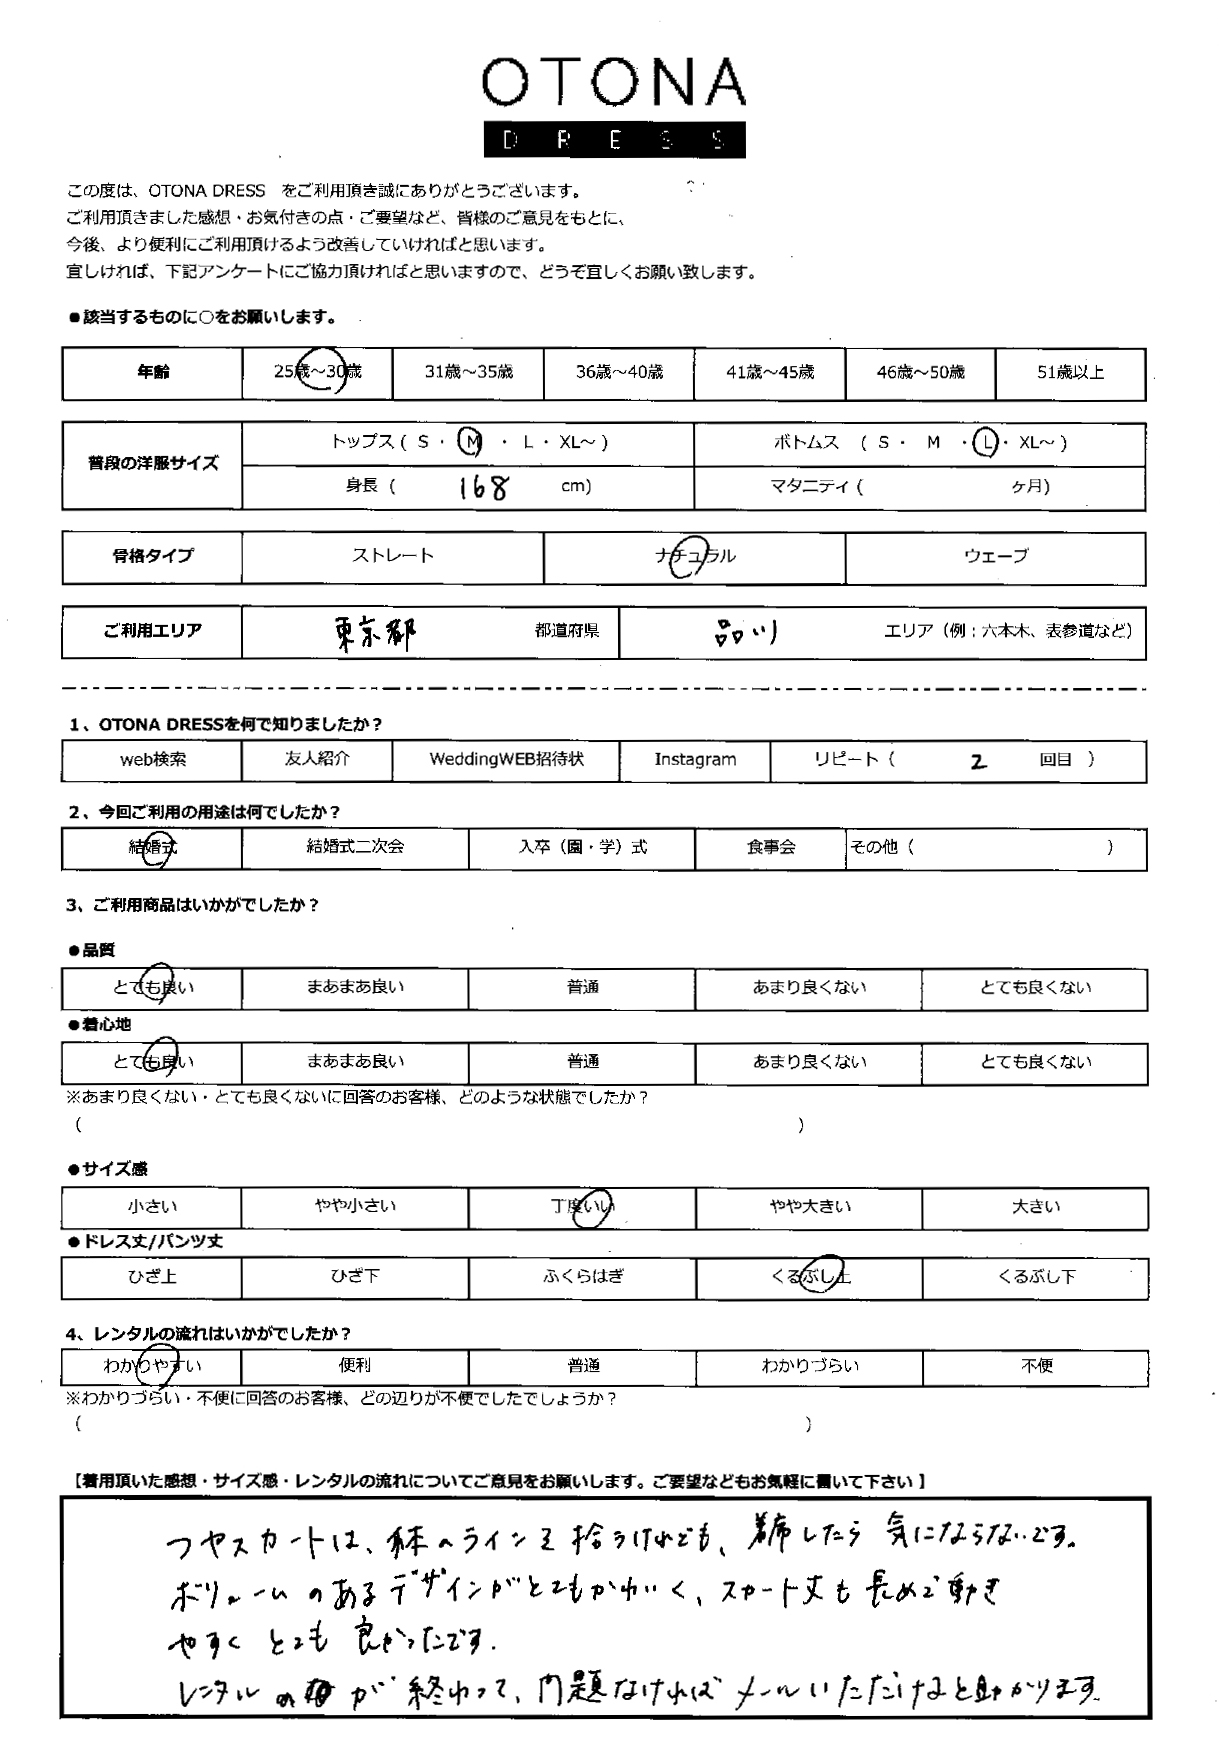 OTONA
DRESS
この度は、OTONA DRESS をご利用頂き誠にありがとうございます。
ご利用頂きました感想・お気付きの点・ご要望など、皆様のご意見をもとに、
今後、より便利にご利用頂けるよう改善していければと思います。
宜しければ、下記アンケートにご協力頂ければと思いますので、どうぞ宜しくお願い致します。
●該当するものに○をお願いします。
年齢 25歳～30歳 31歳～35歳 36歳～40歳 41歳～45歳 46歳～50歳 51歳以上
普段の洋服サイズ トップス ( S ・ M ・ L ・ XL～ ) ボトムス ( S ・ M ・ L ・ XL～ )
身長 ( 168 cm) マタニティ ( ヶ月)
骨格タイプ ストレート ナチュラル ウェーブ
ご利用エリア 東京都 都道府県 品川 エリア（例：六本木、表参道など）
1、OTONA DRESSを何で知りましたか？
web検索 友人紹介 WeddingWEB招待状 Instagram リピート（ 2 回目 ）
2、今回ご利用の用途は何でしたか？
結婚式 結婚式二次会 入卒（園・学）式 食事会 その他（ ）
3、ご利用商品はいかがでしたか？
●品質
とても良い まあまあ良い 普通 あまり良くない とても良くない
●着心地
とても良い まあまあ良い 普通 あまり良くない とても良くない
※あまり良くない・とても良くないに回答のお客様、どのような状態でしたか？
（ ）
●サイズ感
小さい やや小さい 丁度いい やや大きい 大きい
●ドレス丈/パンツ丈
ひざ上 ひざ下 ふくらはぎ くるぶし上 くるぶし下
4、レンタルの流れはいかがでしたか？
わかりやすい 便利 普通 わかりづらい 不便
※わかりづらい・不便に回答のお客様、どの辺りが不便でしたでしょうか？
（ ）
【着用頂いた感想・サイズ感・レンタルの流れについてご意見をお願いします。ご要望などもお気軽に書いて下さい】
つやスカートは、体のラインを拾うけれども、着席したら気にならないです。
ボリュームのあるデザインがとてもかわいく、スカート丈も長めで動き
やすくとても良かったです。
レンタルの が終わって、問題なければメールいただけると助かります。